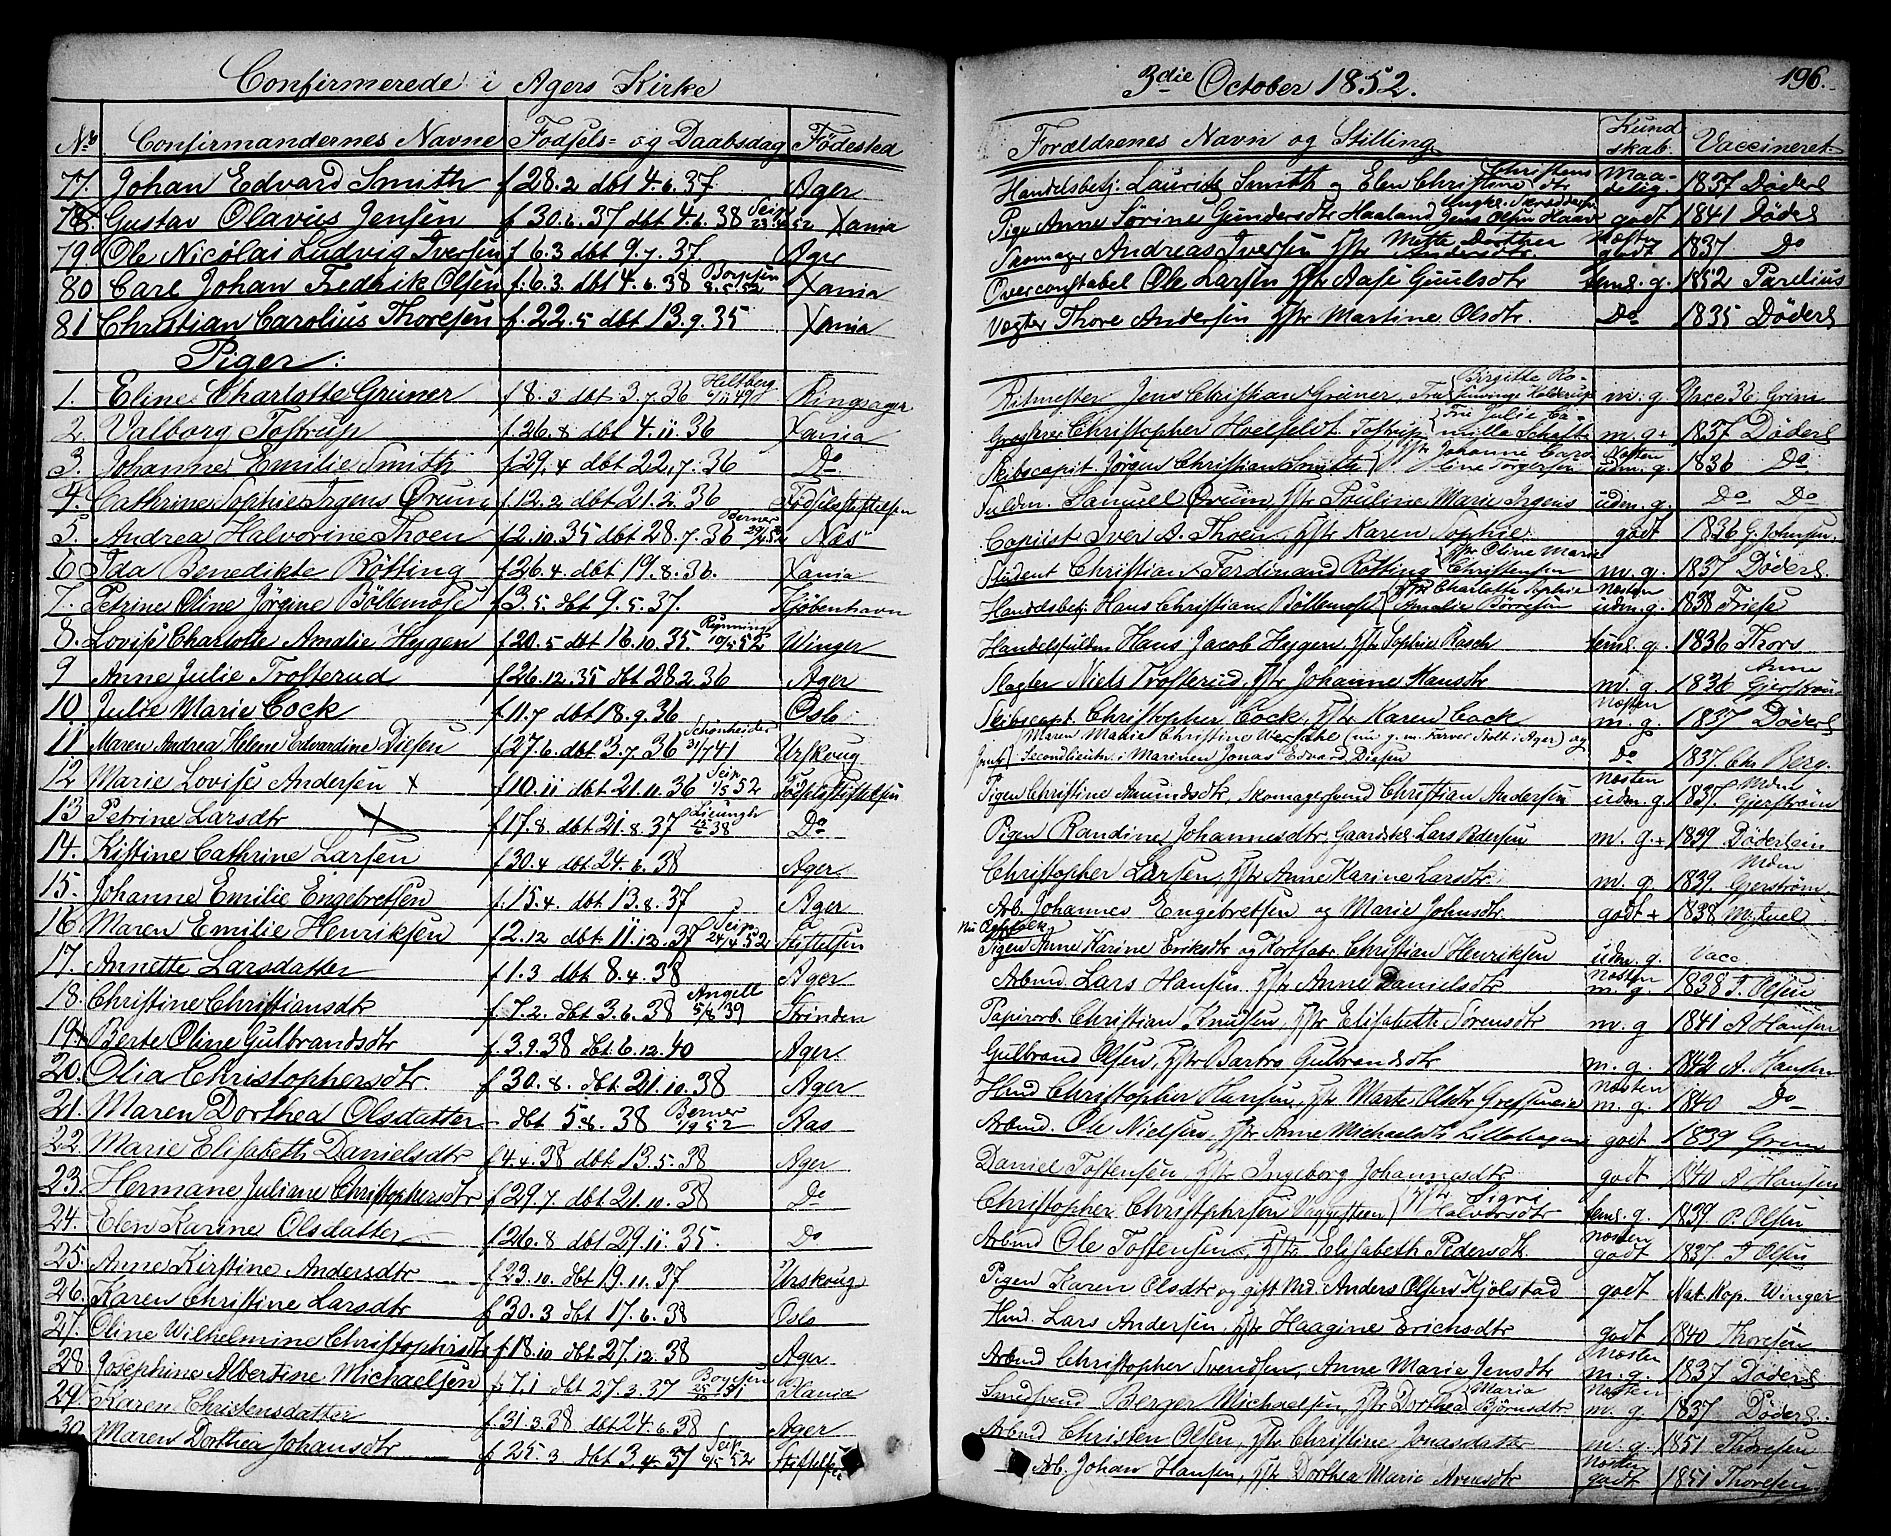 Confirmerede i Agers Kirke
No Confirmandernes Navne Fødsels- og Daabsdag Fødested
77. Johan Edvard Smith f 28.2 dbt 4.6.37. Ager
78. Gustav Olavus Jensen f 30.6.37 dbt 4.6.38 Seip Xania
79. Ole Nicolai Ludvig Iversen f 6.3 dbt 9.7.37. Ager
80 Carl Johan Fredrik Olsen f. 6.3 dbt 4.6.38 8.5.52 Xania
81 Christian Carolius Thoresen f. 22.5 dbt 13.9.35 Xania
Piger:
1. Eline Charlotte Grüner f 8.3 dbt 3.7.36 Heltberg Ringsager
2. Valborg Tostrup f. 26.8 dbt 4.11.36 Xania
3. Johanne Emilie Smith f 29.4 dbt 22.7.36 Do
4. Cathrine Sophie Irgens Ørum f 12.2 dbt 21.2.36 Fødselsstiftelsen
5. Andrea Halvorine Thoen f 2.10.35 dbt 28.7.36 Berner Næs
6 Ida Benedikte Rötting f 26.4 dbt 19.8.36. Xania
7. Petrine Oline Jörgine Böltemose f 3.5. dbt 9.5.37. Kjöbenhavn
8. Lovise Charlotte Amalie Hygen f 20.5 dbt 16.10.35. 10/5 52 Winger
9 Anne Julie Trosterud f 26.12.35 dbt 28.2.36 Ager
10 Julie Marie Cock f 11.7 dbt 18.9.36 Oslo
11 Maren Andrea Helene Edvardine Diesen f 27.6. dbt 3.7.36 Schønheider 31/7 41 Urskoug
12 Marie Lovise Andersen x f 10.11 dbt 21.11.36 Seip 1/5 52 Fødselsstiftelsen
13 Petrine Larsdtr x f 17.8 dbt 21.8.37 38 Do
14. Kistine Cathrine Larsen f 30.4 dbt 24.6.38 Ager.
15. Johanne Emilie Engebretsen f. 15.4. dbt 13.8.37 Ager
16 Maren Emilie Henriksen f 2.12 dbt 11.12.37 Seip 24/4 52 Stiftelsen
17. Annette Larsdatter f 1.3 dbt 8.4.38 Ager
18. Christine Christiansdtr f 7.2. dbt 3.6.38 Angell 5/8 39 Strinden
19 Berte Oline Gulbrandsdtr f. 3.9.38 dbt 6.12.40 Ager.
20. Olia Christophersdtr f 30.8. dbt 21.10.38 Ager
21. Maren Dorthea Olsdatter dbt 5.8.38 Berner 1/9 52 Aas
22. Marie Elisabeth Danielsdtr f 4.4.38 dbt 13.5.38 Ager
23. Hermane Juliane Christophersdtr f 29.7 dbt 21.10.38 Do
24. Elen Karine Olsdatter f 26.8 dbt 29.11.35. Do
25. Anne Kirstine Andersdtr f 23.10. dbt 19.11.37 Urskoug
26. Karen Christine Larsdtr f 30.3 dbt 17.6.38 Oslo
27. Oline Wilhelmine Christophersdtr f 18.10 dbt 27.12.38 Ager
28. Josephine Albertine Michaelsen f. 7.1 dbt 27.3.37 Xania
29. Karen Christensdatter f. 31.3.38 dbt 24.6.38 Ager
30. Maren Dorthea Johansdtr f 25.3 dbt 3.4.37 Seip 6/5 52
3die October 1852. 196.
Forældrenes Navn og Stilling Kundskab. Vaccineret
Handelsbetj: Lauritz Smith og Elen Christine Christensdtr Maadelig. 1837 Döderl
Pige Anne Sörine Gundersdtr Haaland, godt 1841 Döderl
Skomager Andreas Iversen Hstr Mette Dorthea Andersdtr. Næsten godt. 1837 Do
Overconstabel Ole Larsen Hstr Aase Guulsdtr temml. g. 1852 Parelius
Vægter Thore Andersen Hstr Martine Olsdtr. Do 1835 Döderl
Ritmester Jens Christian Grüner, Fru Birgitte m. g Vacc 36 Grim
Grosserer Christopher Hoelfeldt Tostrup Fru Julie Camilla m. g + 1837 Döderl
Skibscapit. Jörgen Christian Smith Hstr Johanne Caroline Torgersen Næsten udm. g. 1836 Do
Fuldm. Samuel Örum, Hstr Pouline Marie Irgens udm. g. Do Do
Copiist Iver A. Thoen, Hstr Karen Sophie godt 1836 G. Johnsen
Student Christian Ferdinand Rötting Hstr Oline Marie Christensen m. g. 1837 Döderl.
Handelsbetj: Hans Christian Böltemose Hstr Charlotte Sophie Amalie Börresen Næsten udm. g. 1838 Friese
Handelsfuldm Hans Jacob Hygen Hstr Sophie Rasch teml. g. 1836 Thors
Slagter Niels Trosterud, Hstr Johanne Hansdtr m. g. 1836 Anne Gjerström
Skibscapt. Christopher Cock, Hstr Karen Cock næsten m. g. 1837 Döderl
Maren Marie Christine (nu g. m. Farver Holt i Ager) og
Secondlieutn. i Marinen Jonas Edvard Diesen Do 1837 Chr Berg.
Pigen Christine Amundsdtr, Skomagersvend Christian Andersen næsten udm. g. 1837. Mdm Gjerström
Pigen Randine Johannesdtr. Gaardbk Lars Pedersen m. g. + 1839 Döderlein
Christopher Larsen, Hstr Anne Karine Larsdtr. m. g. 1839. Mdm Gjerström
Arb. Johannes Engebretsen og Marie Johnsdtr. godt + 1838
Pigen Anne Karine Eriksdtr og Christian Henriksen udm. g. Vacc.
Arbmd. Lars Hansen. Hstr Anne Danielsdtr. næsten m. g. 1838 T. Olsen
Papirarb. Christian Knudsen, Hstr Elisabeth Sörensdtr m. g 1841 A Hansen
Gulbrand Olsen, Hstr Bartro Gulbrandsdtr m. g. 1842 A. Hansen
Hmd Christopher Hansen, Hstr Marte Olsdtr Næsten m. g. 1840 Do
Arbmd. Ole Nielsen, Hstr Anne Michaelsdtr Lillehagen godt 1839
Daniel Tostensen Hstr Ingeborg Johannesdtr godt 1840 A Hansen
Christopher Christophersen Hstr Sigri Halvorsdtr teml. g. 1839 P. Olsen
Arbmd Ole Tostensen, Hstr Elisabeth Pedersdtr. næsten godt 1837. T. Olsen
Pigen Karen Olsdtr og gift Md. Anders Olsen Kjölstad godt Nat. Kop. Winger
Hmd. Lars Andersen, Hstr Haagine Erichsdtr godt 1840 Thoresen
Arbmd Christopher Svendsen, Anne Marie Jensdtr næsten m. g. 1837 Döderl
Smedsvend Berger Michaelsen, Hstr Dorthea Maria Björnsdtr næsten m. g. 1837 Döderl.
Arbmd Christen Olsen, Hstr Christine Jonasdatter m. g. 1851 Thoresen
Arb. Johan Hansen, Hstr Dorthea Marie Arnesdtr Næsten godt 1851 Thoresen